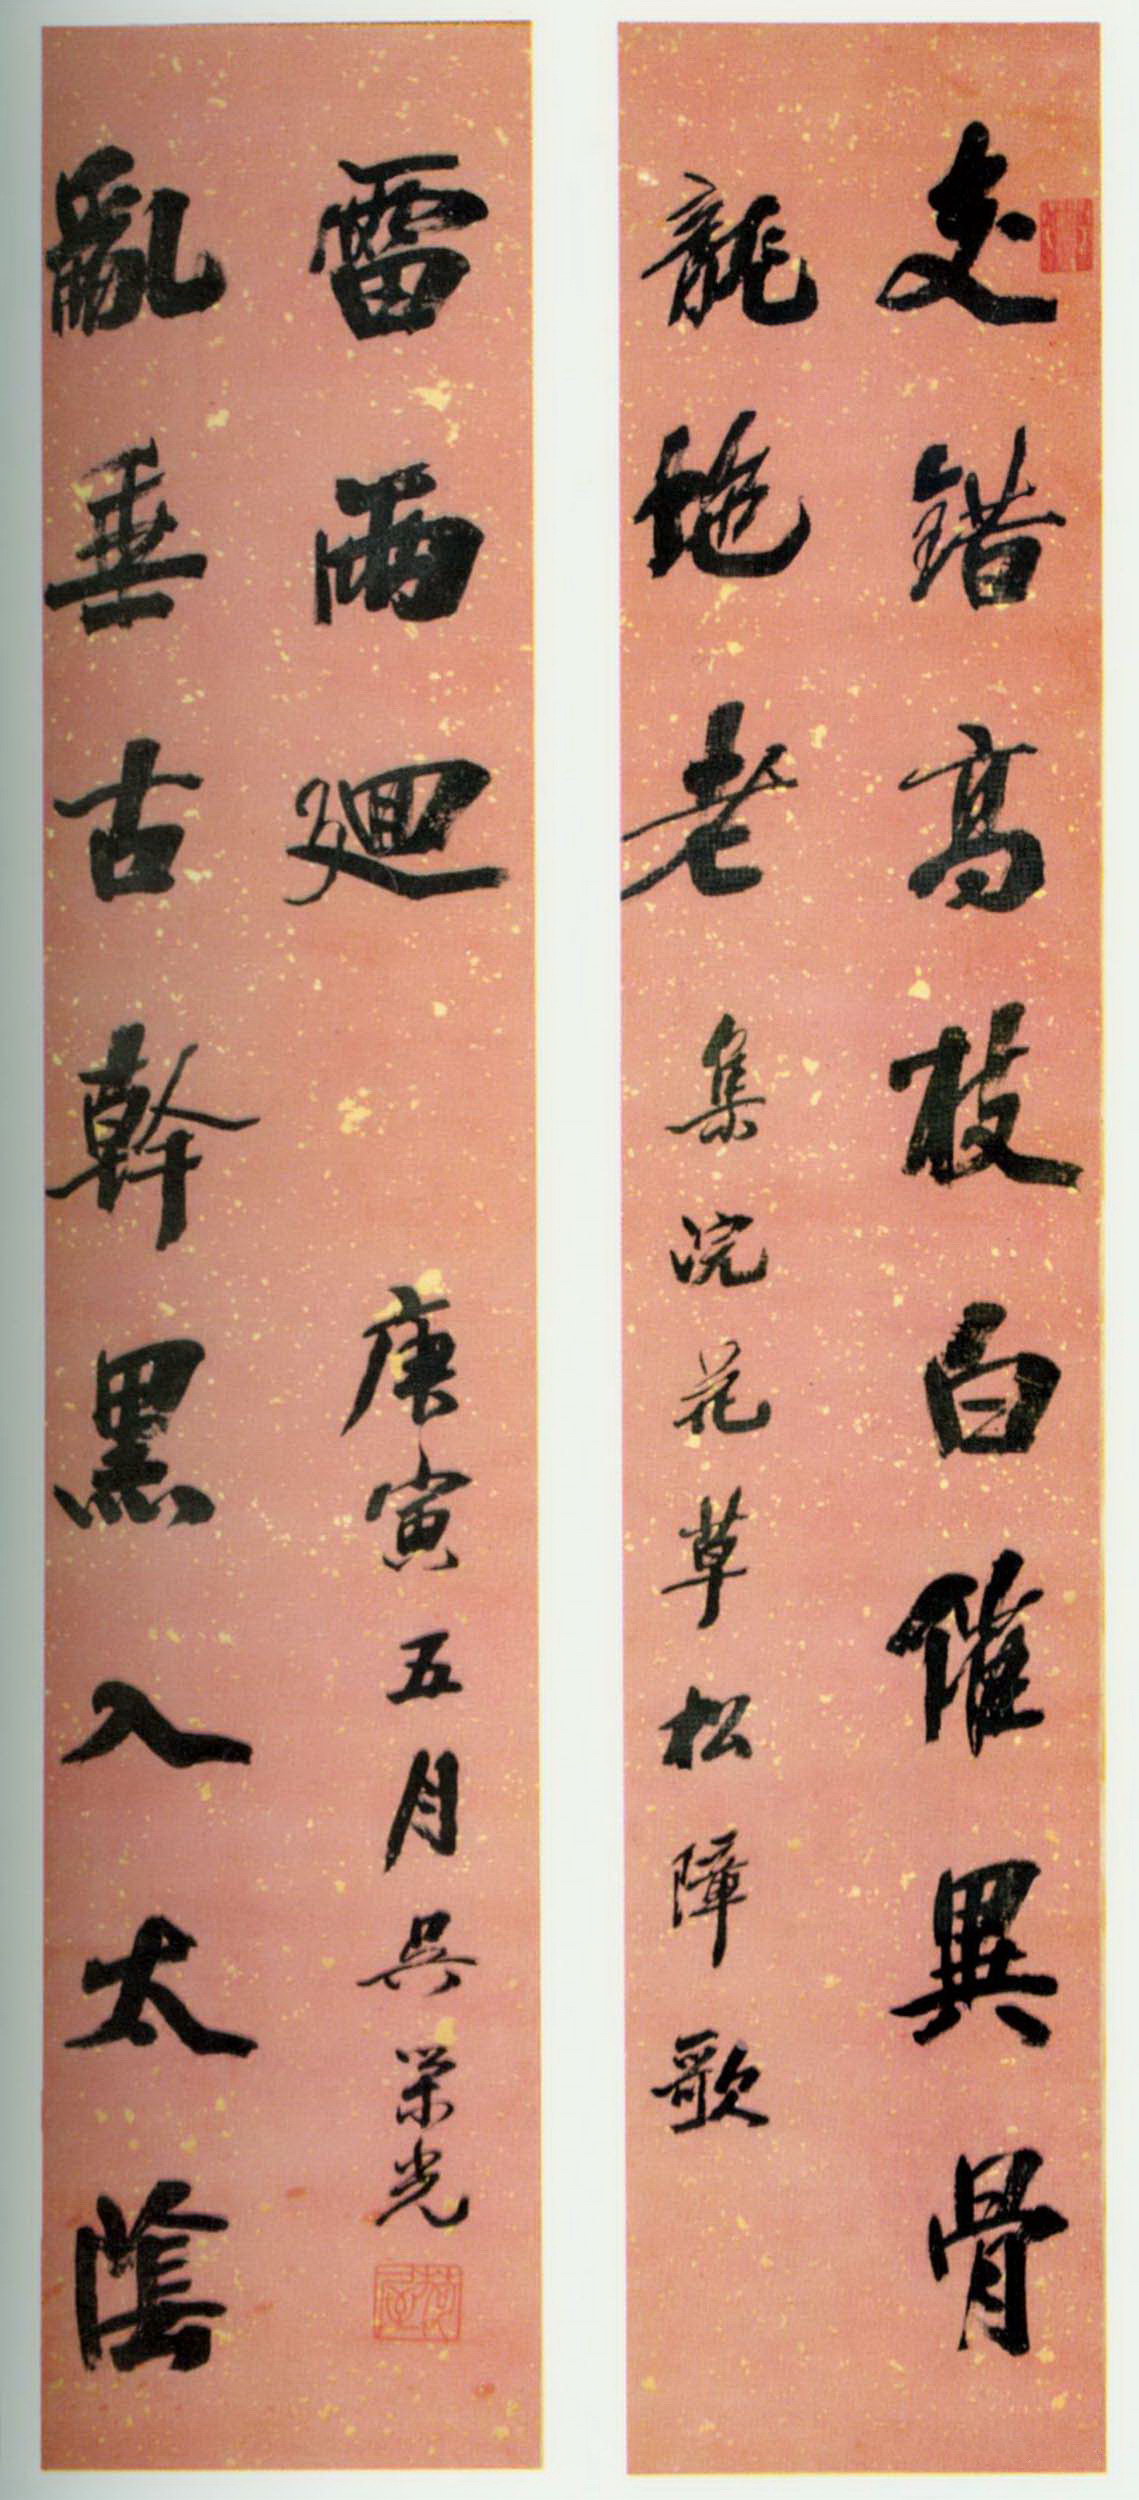 交錯高枝白催異骨
龍虵老 集浣花草松障歌
亂垂古幹黑入太陰
雷雨廻 庚寅五月吳榮光
荷屋